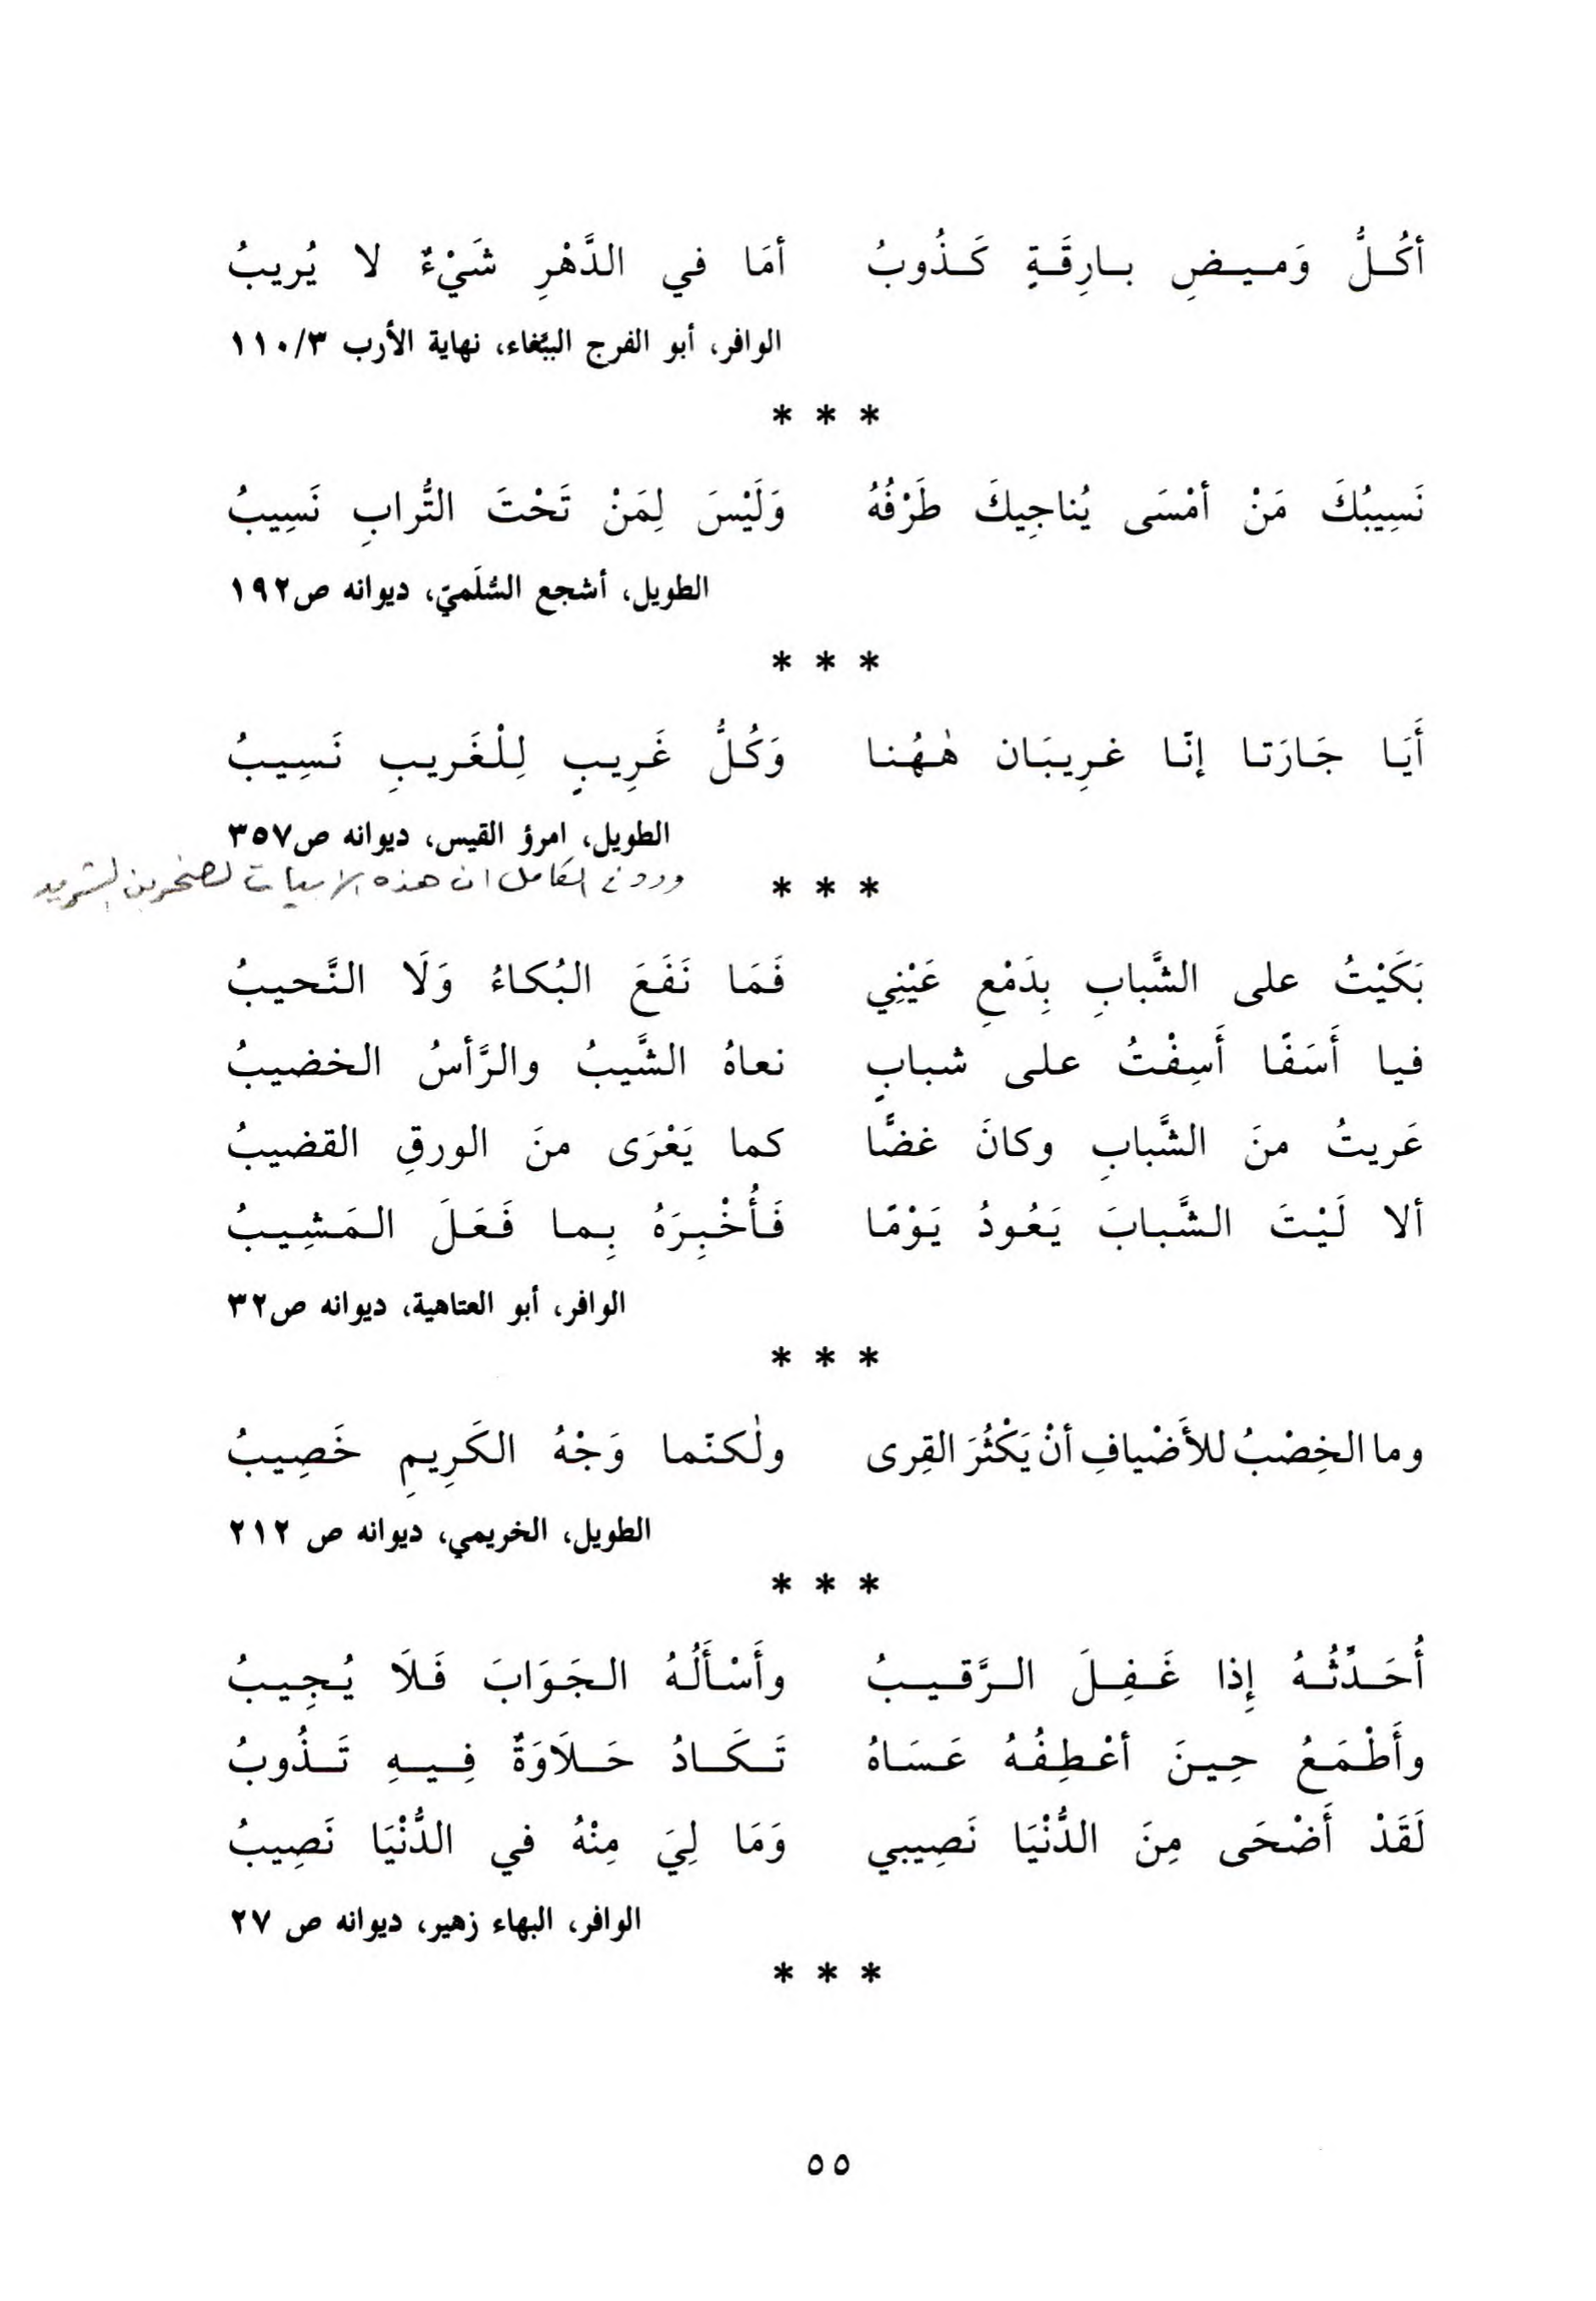 أكُلُّ وَميضِ بارِقَةٍ كَذُوبُ أمَا في الدَّهْرِ شَيْءٌ لا يُريبُ
الوافر، أبو الفرج الببَّغاء، نهاية الأرب ١١٠/٣
* * *
نَسِيبُكَ مَنْ أمْسَى يُناجِيكَ طَرْفُهُ وَلَيْسَ لِمَنْ تَحْتَ التُّرابِ نَسِيبُ
الطويل، أشجع السُّلَميّ، ديوانه ص١٩٢
* * *
أَيَا جَارَتا إنّا غرِيبَان هٰهُنا وَكُلُّ غَرِيبٍ لِلْغَريبِ نَسِيبُ
الطويل، امرؤ القيس، ديوانه ص٣٥٧
ورد في الكامل ان هذه الابيات لصخر بن الشريد
* * *
بَكَيْتُ على الشَّبابِ بِدَمْعِ عَيْنِي فَمَا نَفَعَ البُكاءُ وَلَا النَّحيبُ
فيا أَسَفًا أَسِفْتُ على شبابٍ نعاهُ الشَّيبُ والرَّأسُ الخضيبُ
عَريتُ منَ الشَّبابِ وكانَ غضًّا كما يَعْرَى منَ الورقِ القضيبُ
ألا لَيْتَ الشَّبابَ يَعُودُ يَوْمًا فَأُخْبِرَهُ بِما فَعَلَ المَشِيبُ
الوافر، أبو العتاهية، ديوانه ص٣٢
* * *
وما الخِصْبُ للأَضْيافِ أنْ يَكْثُرَ القِرى ولٰكنّما وَجْهُ الكَرِيمِ خَصِيبُ
الطويل، الخريمي، ديوانه ص ٢١٢
* * *
أُحَدِّثُهُ إِذا غَفِلَ الرَّقيبُ وأَسْأَلُهُ الجَوَابَ فَلَا يُجِيبُ
وأَطْمَعُ حِينَ أعْطِفُهُ عَسَاهُ تَكَادُ حَلَاوَةٌ فِيهِ تَذُوبُ
لَقَدْ أَضْحَى مِنَ الدُّنْيَا نَصِيبي وَمَا لِيَ مِنْهُ في الدُّنْيَا نَصِيبُ
الوافر، البهاء زهير، ديوانه ص ٢٧
* * *
٥٥